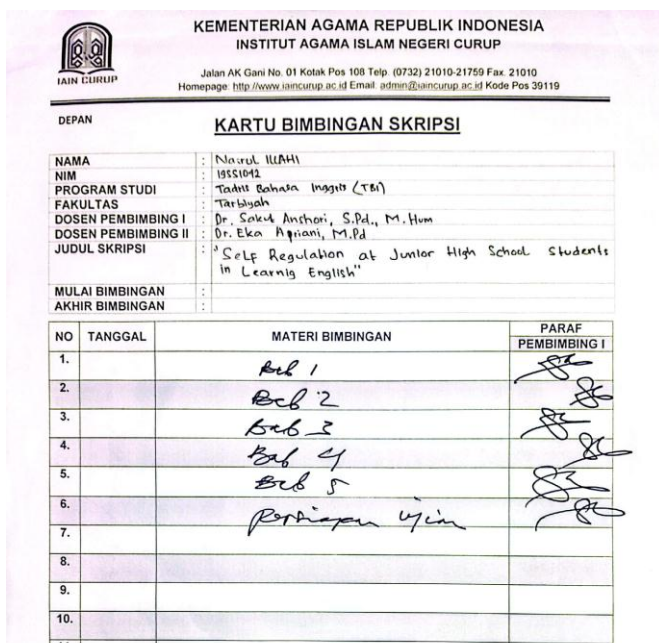 KEMENTERIAN AGAMA REPUBLIK INDONESIA
INSTITUT AGAMA ISLAM NEGERI CURUP
IAIN CURUP
Jalan AK Gani No. 01 Kotak Pos 108 Telp. (0732) 21010-21759 Fax. 21010
Homepage: http://www.iaincurup.ac.id Email: admin@iaincurup.ac.id Kode Pos 39119
DEPAN
KARTU BIMBINGAN SKRIPSI
NAMA : Nairul ILLAHI
NIM : 19551042
PROGRAM STUDI : Tadris Bahasa Inggris (TBI)
FAKULTAS : Tarbiyah
DOSEN PEMBIMBING I : Dr. Sakut Anshori, S.Pd., M.Hum
DOSEN PEMBIMBING II : Dr. Eka Apriani, M.Pd
JUDUL SKRIPSI : "Self Regulation at Junior High School Students
in Learnig English"
MULAI BIMBINGAN :
AKHIR BIMBINGAN :
NO TANGGAL MATERI BIMBINGAN PARAF
PEMBIMBING I
1. Bab 1
2. Bab 2
3. Bab 3
4. Bab 4
5. Bab 5
6. Persiapan ujian
7.
8.
9.
10.